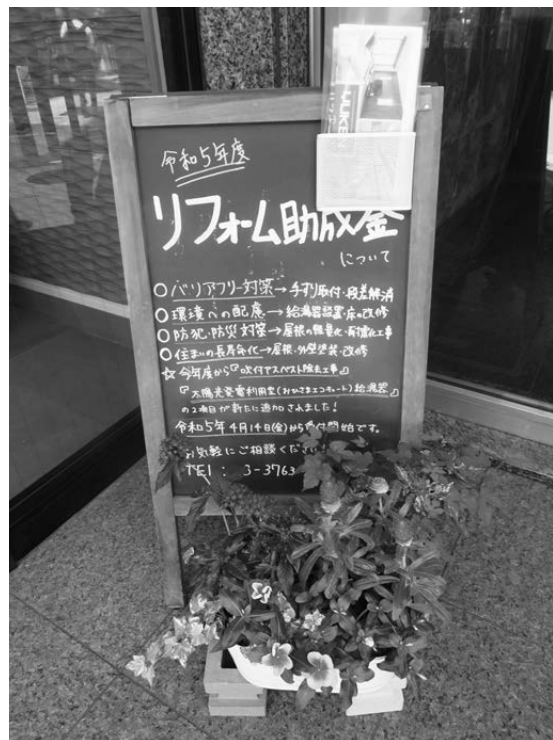 令和5年度
リフォーム助成金
について
○バリアフリー対策→手すり取付・段差解消
○環境への配慮→給湯器設置・床の改修
○防犯・防災対策→屋根の軽量化・耐震化工事
○住まいの長寿命化→屋根・外壁塗装・改修
☆今年度から『吹付アスベスト除去工事』
『太陽光発電利用型(おひさまエコキュート)給湯器』
の2項目が新たに追加されました!
令和5年4月14日(金)から受付開始です。
お気軽にご相談ください
TEL: 3-3763